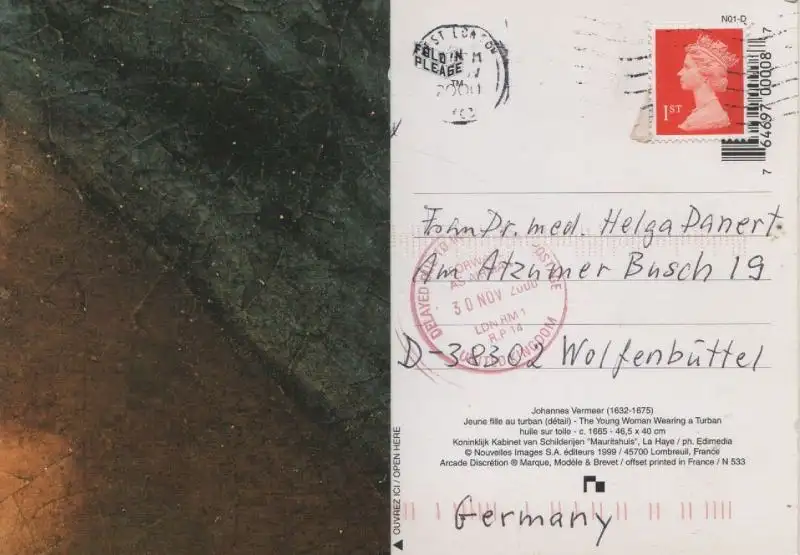 N01-D
FOLD IN
PLEASE
2000
1ST
7 64697 00008 7
Frohn Dr. med. Helga Panert
Am Atzumer Busch 19
D-38302 Wolfenbüttel
DELAYED
30 NOV 2000
LDN.RM 1
R.P 14
UNITED KINGDOM
Johannes Vermeer (1632-1675)
Jeune fille au turban (détail) - The Young Woman Wearing a Turban
huile sur toile - c. 1665 - 46,5 x 40 cm
Koninklijk Kabinet van Schilderijen "Mauritshuis", La Haye / ph. Edimedia
© Nouvelles Images S.A. éditeurs 1999 / 45700 Lombreuil, France
Arcade Discrétion ® Marque, Modèle & Brevet / offset printed in France / N 533
OUVREZ ICI / OPEN HERE
Germany